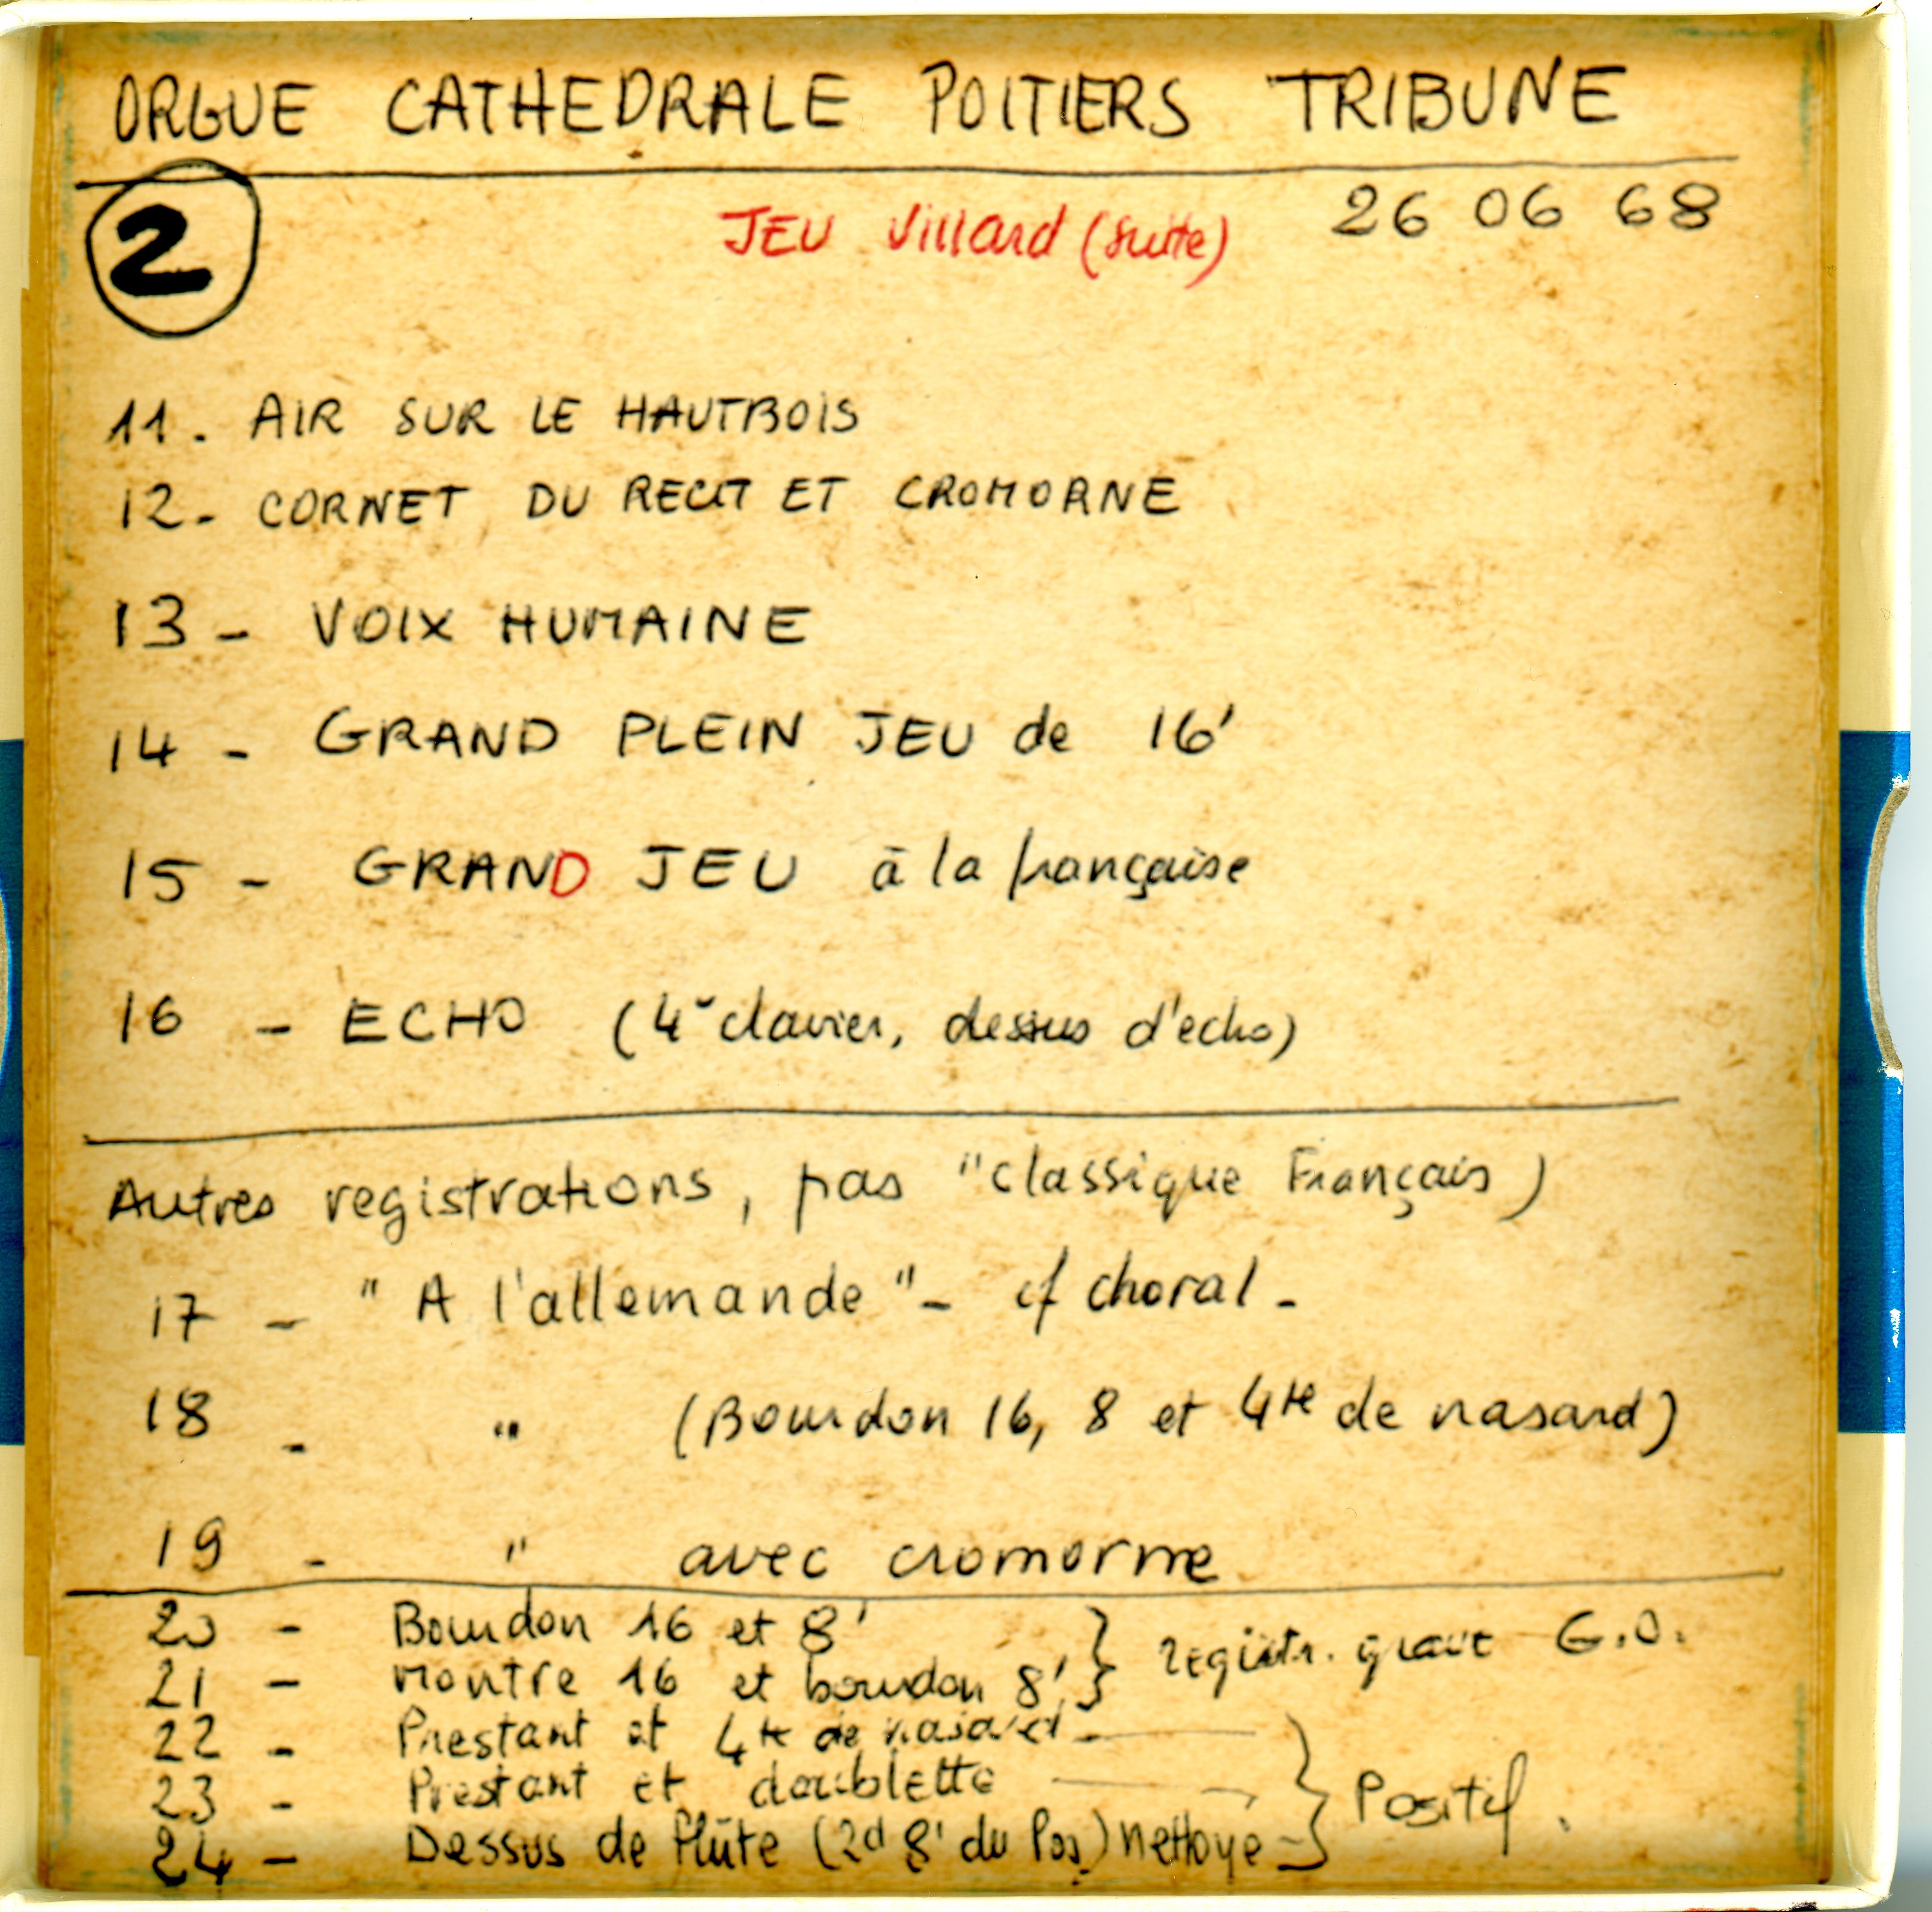 ORGUE CATHEDRALE POITIERS TRIBUNE
2
JEU Villard (suite) 26 06 68
11. AIR SUR LE HAUTBOIS
12- CORNET DU RECIT ET CROMORNE
13 - VOIX HUMAINE
14 - GRAND PLEIN JEU de 16'
15 - GRAND JEU à la française
16 - ECHO (4e clavier, dessus d'echo)
Autres registrations, pas "classique Français)
17 - " A l'allemande " - cf choral -
18 - " (Bourdon 16, 8 et 4te de nasard)
19 - " avec cromorne
20 - Bourdon 16 et 8'
21 - Montre 16 et bourdon 8' } registr. grave G.O.
22 - Prestant et 4te de nasard -
23 - Prestant et doublette } Positif.
24 - Dessus de flûte (2d 8' du Pos) nettoye -